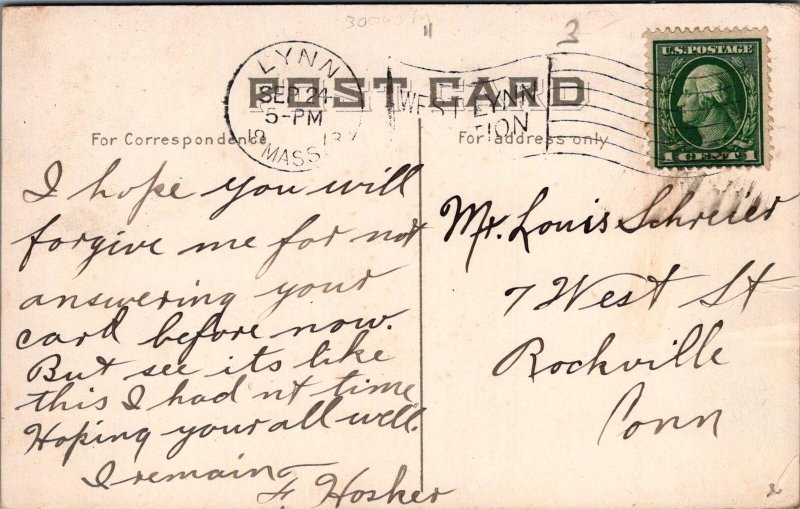 3
LYNN
SEP 24
5-PM
19 13
MASS.
WEST LYNN
U.S. POSTAGE
1 CENT 1
POST CARD
For Correspondence
For address only
I hope you will
forgive me for not
answering your
card before now.
But see its like
this I had nt time
Hoping your all well.
I remain
F Hosker
Mr. Louis Schreier
7 West St
Rockville
Conn